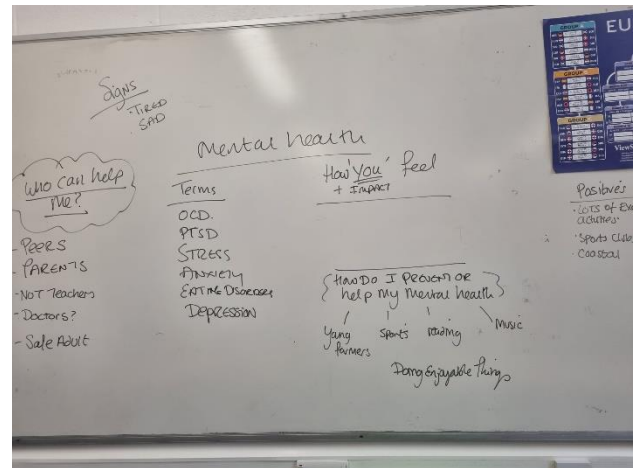 Signs
- TIRED
SAD
Mental health
Who can help
Me?
- PEERS
- PARENTS
- NOT Teachers
- Doctors?
- Safe Adult
Terms
OCD.
PTSD
STRESS
ANXIETY
EATING DISORDERS
Depression
How 'You' feel
+ IMPACT
How Do I PREVENT OR
help my mental health
Young
farmers
Sports
Reading
Music
Doing Enjoyable Things
Positives
- LOTS of
activities.
- Sports Clubs
- Coastal
EU
GROUP
GROUP
GROUP
ViewS